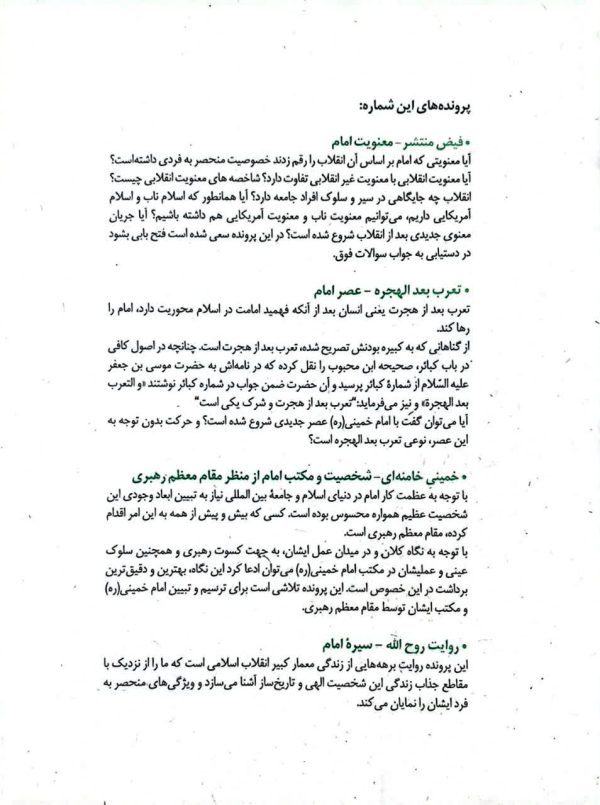 پرونده‌های این شماره:
• فیض منتشر – معنویت امام
آیا معنویتی که امام بر اساس آن انقلاب را رقم زدند خصوصیت منحصر به فردی داشته‌است؟
آیا معنویت انقلابی با معنویت غیر انقلابی تفاوت دارد؟ شاخصه های معنویت انقلابی چیست؟
انقلاب چه جایگاهی در سیر و سلوک افراد جامعه دارد؟ آیا همانطور که اسلام ناب و اسلام
آمریکایی داریم، می‌توانیم معنویت ناب و معنویت آمریکایی هم داشته باشیم؟ آیا جریان
معنوی جدیدی بعد از انقلاب شروع شده است؟ در این پرونده سعی شده است فتح بابی بشود
در دستیابی به جواب سوالات فوق.
• تعرب بعد الهجره – عصر امام
تعرب بعد از هجرت یعنی انسان بعد از آنکه فهمید امامت در اسلام محوریت دارد، امام را
رها کند.
از گناهانی که به کبیره بودنش تصریح شده، تعرب بعد از هجرت است. چنانچه در اصول کافی
در باب کبائر، صحیحه ابن محبوب را نقل کرده که در نامه‌اش به حضرت موسی بن جعفر
علیه السّلام از شمارهٔ کبائر پرسید و آن حضرت ضمن جواب در شماره کبائر نوشتند «و التعرب
بعد الهجرة» و نیز می‌فرماید:"تعرب بعد از هجرت و شرک یکی است"
آیا می‌توان گفت با امام خمینی(ره) عصر جدیدی شروع شده است؟ و حرکت بدون توجه به
این عصر، نوعی تعرب بعد الهجره است؟
• خمینی خامنه‌ای– شخصیت و مکتب امام از منظر مقام معظم رهبری
با توجه به عظمت کار امام در دنیای اسلام و جامعهٔ بین المللی نیاز به تبیین ابعاد وجودی این
شخصیت عظیم همواره محسوس بوده است. کسی که بیش و پیش از همه به این امر اقدام
کرده، مقام معظم رهبری است.
با توجه به نگاه کلان و در میدان عمل ایشان، به جهت کسوت رهبری و همچنین سلوک
عینی و عملیشان در مکتب امام خمینی(ره) می‌توان ادعا کرد این نگاه، بهترین و دقیق‌ترین
برداشت در این خصوص است. این پرونده تلاشی است برای ترسیم و تبیین امام خمینی(ره)
و مکتب ایشان توسط مقام معظم رهبری.
• روایت روح الله – سیرهٔ امام
این پرونده روایتِ برهه‌هایی از زندگی معمار کبیر انقلاب اسلامی است که ما را از نزدیک با
مقاطع جذاب زندگی این شخصیت الهی و تاریخ‌ساز آشنا می‌سازد و ویژگی‌های منحصر به
فرد ایشان را نمایان می‌کند.